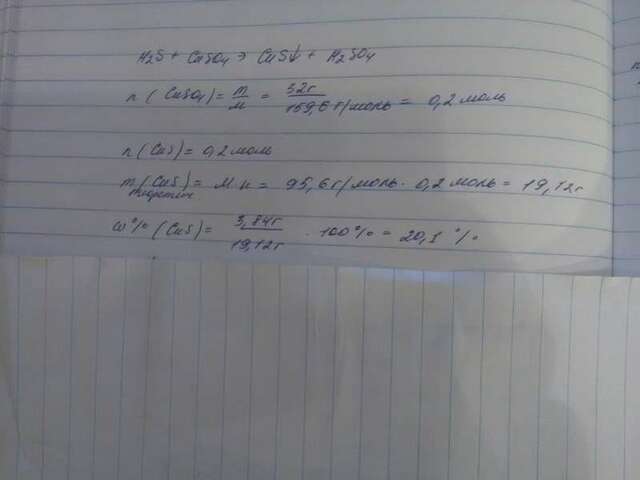 H₂S + CuSO₄ → CuS↓ + H₂SO₄
n (CuSO₄) = m/M = 32г/159,6 г/моль = 0,2 моль
n (CuS) = 0,2 моль
m (CuS) = M · n = 95,6 г/моль · 0,2 моль = 19,12 г
теоретич
ω% (CuS) = 3,84г/19,12г · 100% = 20,1 %